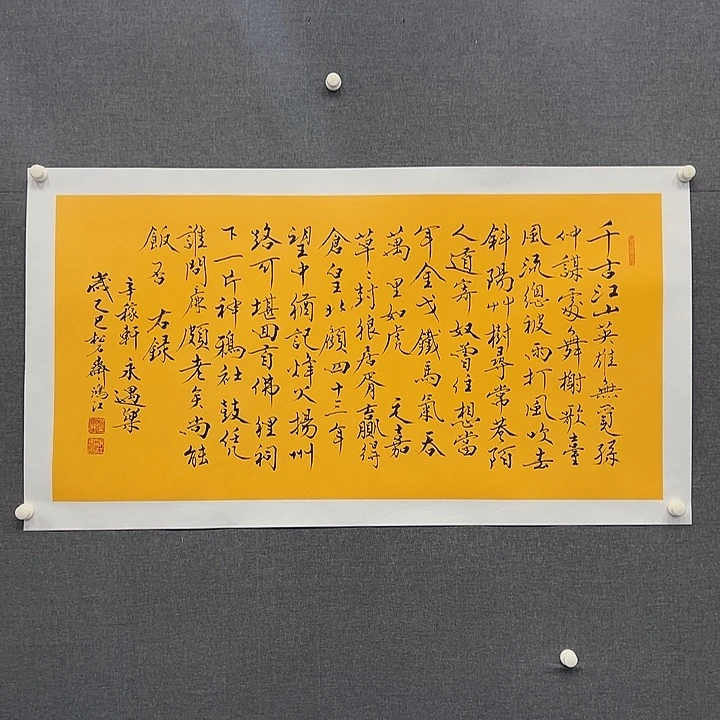 千古江山英雄無覓孫
仲謀處舞榭歌臺
風流總被雨打風吹去
斜陽艸樹尋常巷陌
人道寄奴曾住想當
年金戈鐵馬氣吞
萬里如虎 元嘉
草々封狼居胥意贏得
倉皇北顧四十三年
望中猶記烽火揚州
路可堪回首佛狸祠
下一片神鴉社鼓任凭
誰問廉頗老矣尚能
飯否 右録
辛稼軒 永遇樂
歲乙巳 齋鴻江